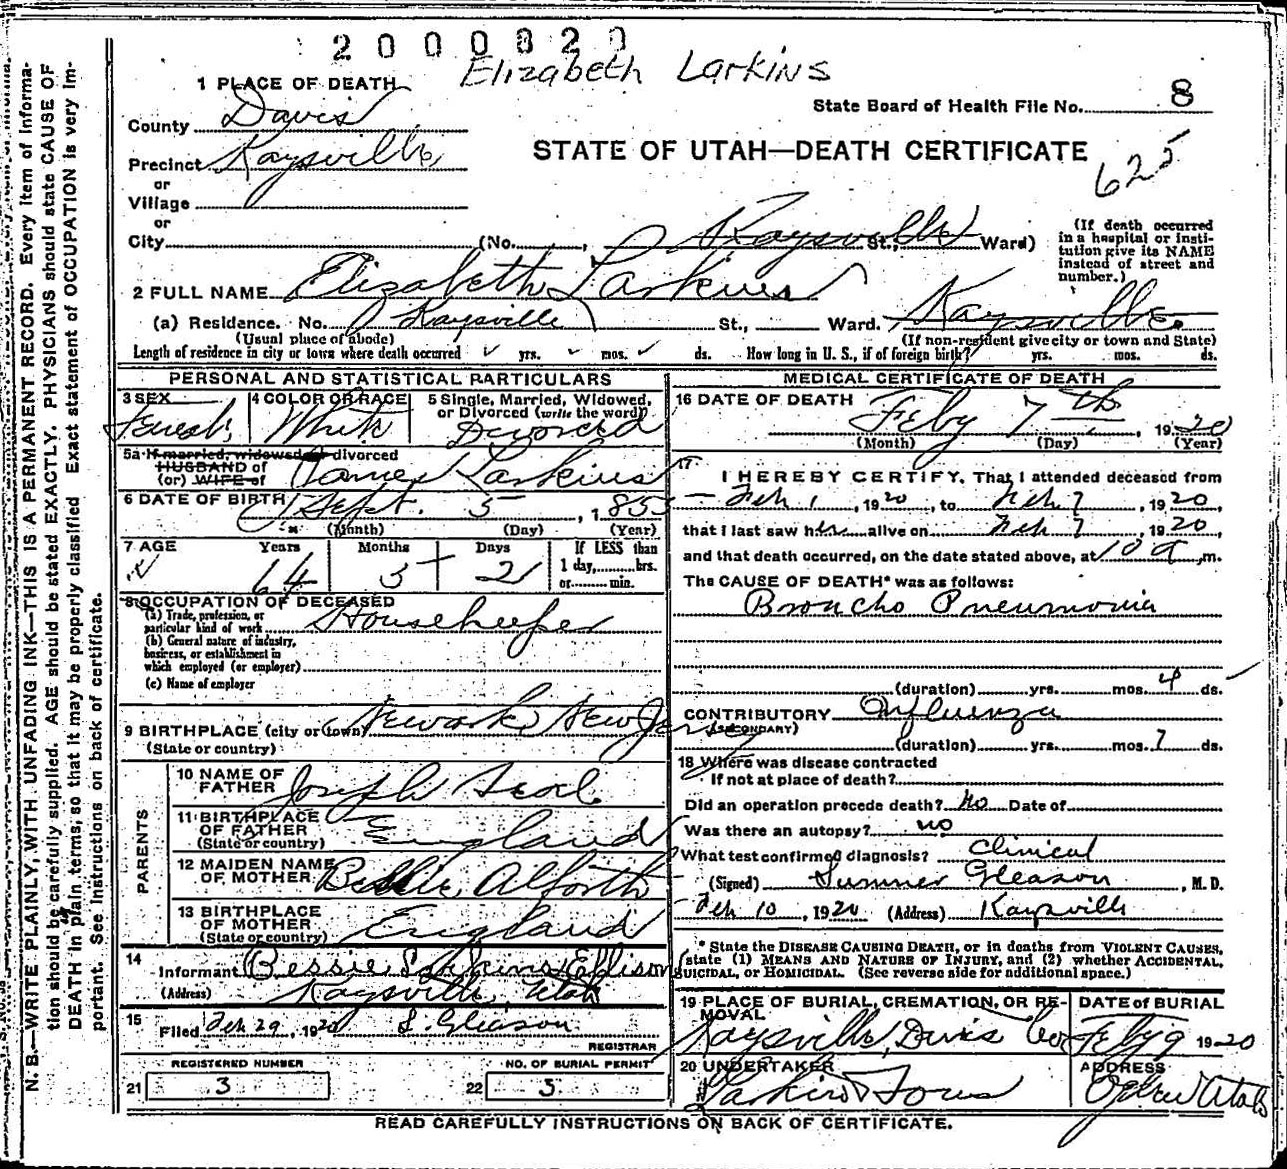 2000020
Elizabeth Larkins
1 PLACE OF DEATH
State Board of Health File No. 8
County Davis
STATE OF UTAH—DEATH CERTIFICATE
625
Precinct Kaysville
or
Village
or
City (No. , Kaysville St., Ward)
(If death occurred in a hospital or institution give its NAME instead of street and number.)
2 FULL NAME Elizabeth Larkins
(a) Residence. No. Kaysville St., Ward. Kaysville
(Usual place of abode) (If non-resident give city or town and State)
Length of residence in city or town where death occurred yrs. mos. ds. How long in U. S., if of foreign birth? yrs. mos. ds.
PERSONAL AND STATISTICAL PARTICULARS
3 SEX Female 4 COLOR OR RACE White 5 Single, Married, Widowed, or Divorced (write the word) Divorced
5a If married, widowed or divorced
HUSBAND of
(or) WIFE of James Larkins
6 DATE OF BIRTH Sept. 5, 1855
(Month) (Day) (Year)
7 AGE Years Months Days If LESS than
1 day, hrs.
64 5 2 or min.
8 OCCUPATION OF DECEASED
(a) Trade, profession, or particular kind of work Housekeeper
(b) General nature of industry, business, or establishment in which employed (or employer)
(c) Name of employer
9 BIRTHPLACE (city or town) Newark New Jersey
(State or country)
PARENTS
10 NAME OF FATHER Joseph
11 BIRTHPLACE OF FATHER England
(State or country)
12 MAIDEN NAME OF MOTHER Alforth
13 BIRTHPLACE OF MOTHER England
(State or country)
14
Informant Bessie Larkins Ellison
(Address) Kaysville, Utah
15
Filed Feb 29, 1920 S. Gleason
REGISTRAR
REGISTERED NUMBER NO. OF BURIAL PERMIT
21 3 22 5
MEDICAL CERTIFICATE OF DEATH
16 DATE OF DEATH Feby 7th, 1920
(Month) (Day) (Year)
17
I HEREBY CERTIFY. That I attended deceased from
Feb 1, 1920, to Feb 7, 1920,
that I last saw her alive on Feb 7, 1920
and that death occurred, on the date stated above, at 10 a m.
The CAUSE OF DEATH* was as follows:
Broncho Pneumonia
(duration) yrs. mos. 4 ds.
CONTRIBUTORY Influenza
(SECONDARY)
(duration) yrs. mos. 7 ds.
18 Where was disease contracted
If not at place of death?
Did an operation precede death? No Date of
Was there an autopsy? no
What test confirmed diagnosis? Clinical
(Signed) Sumner Gleason, M. D.
Feb 10, 1920 (Address) Kaysville
* State the DISEASE CAUSING DEATH, or in deaths from VIOLENT CAUSES,
state (1) MEANS AND NATURE OF INJURY, and (2) whether ACCIDENTAL,
SUICIDAL, or HOMICIDAL. (See reverse side for additional space.)
19 PLACE OF BURIAL, CREMATION, OR REMOVAL DATE of BURIAL
Kaysville, Davis Co Feby 9 1920
20 UNDERTAKER ADDRESS
Larkin & Sons Ogden Utah
READ CAREFULLY INSTRUCTIONS ON BACK OF CERTIFICATE.
N. B.—WRITE PLAINLY, WITH UNFADING INK—THIS IS A PERMANENT RECORD. Every item of information should be carefully supplied. AGE should be stated EXACTLY. PHYSICIANS should state CAUSE OF DEATH in plain terms, so that it may be properly classified. Exact statement of OCCUPATION is very important. See instructions on back of certificate.